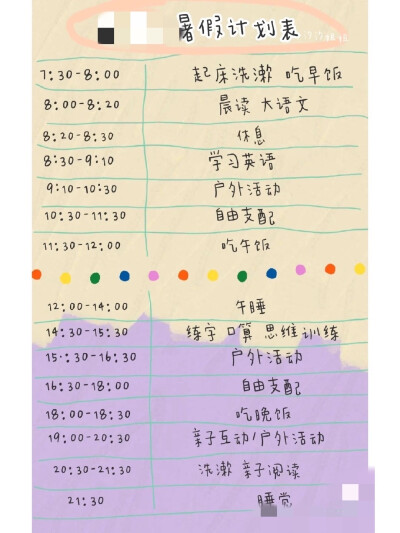 暑假计划表
7:30-8:00 起床洗漱 吃早饭
8:00-8:20 晨读 大语文
8:20-8:30 休息
8:30-9:10 学习英语
9:10-10:30 户外活动
10:30-11:30 自由支配
11:30-12:00 吃午饭
12:00-14:00 午睡
14:30-15:30 练字 口算 思维训练
15:30-16:30 户外活动
16:30-18:00 自由支配
18:00-18:30 吃晚饭
19:00-20:30 亲子互动/户外活动
20:30-21:30 洗漱 亲子阅读
21:30 睡觉